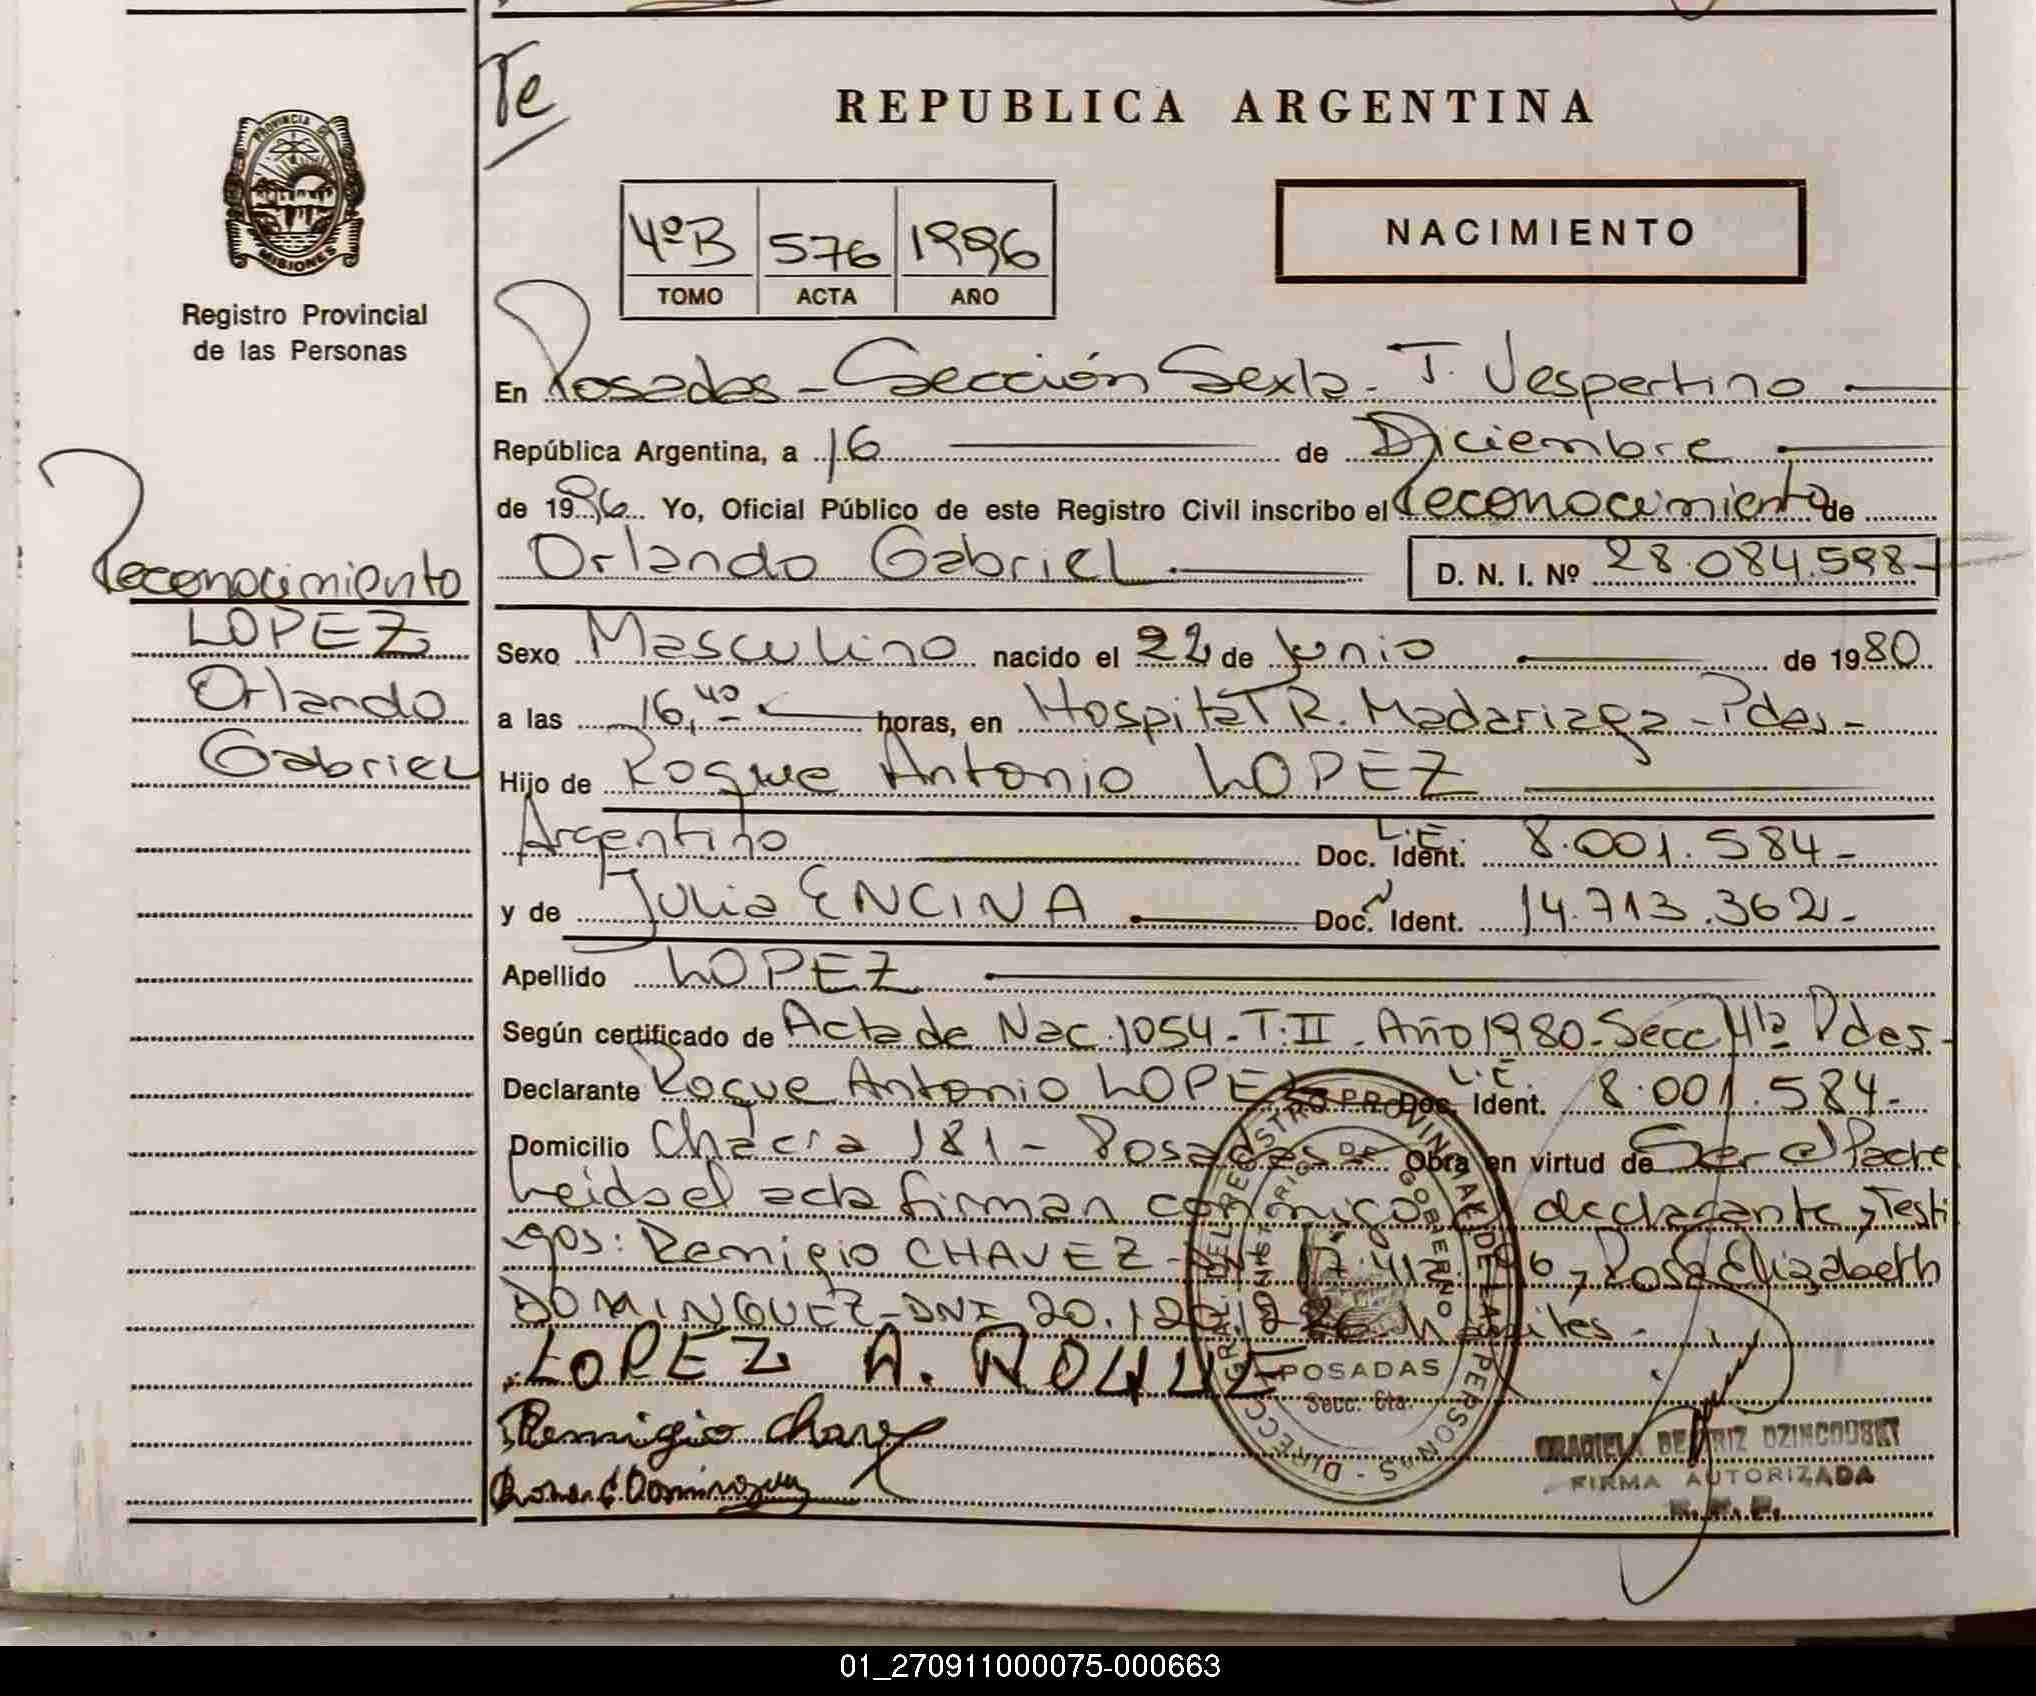 Te
REPUBLICA ARGENTINA
PROVINCIA DE
MISIONES
Registro Provincial
de las Personas
4ºB 576 1996
TOMO ACTA AÑO
NACIMIENTO
En Posadas - Sección Sexta - T. Vespertino
República Argentina, a 16 de Diciembre
de 1996 Yo, Oficial Público de este Registro Civil inscribo el Reconocimiento de
Orlando Gabriel D. N. I. Nº 28.084.598-
Reconocimiento
LOPEZ
Orlando
Gabriel
Sexo Masculino nacido el 22 de Junio de 1980
a las 16,40 horas, en Hospital R. Madariaga - Pdas -
Hijo de Roque Antonio LOPEZ
Argentino Doc. Ident. L.E. 8.001.584-
y de Julia ENCINA Doc. Ident. 14.713.362-
Apellido LOPEZ
Según certificado de Acta de Nac. 1054 - T. II - Año 1980 - Secc 4ta Pdas -
Declarante Roque Antonio LOPEZ Doc. Ident. L.E. 8.001.584-
Domicilio Chacra 181 - Posadas Obra en virtud de Ser el Padre
Leida el acta firman conmigo el declarante, y Testi
gos: Remigio CHAVEZ - y Rosa Elizabeth
DOMINGUEZ - DNI 20.120. -
LOPEZ A. ROQUE
Remigio Chavez
Rosa E. Dominguez
DIRECCION GRAL. DEL REGISTRO PROVINCIAL DE LAS PERSONAS
MINISTERIO DE GOBIERNO
POSADAS
Secc. 6ta.
GRACIELA BEATRIZ DZINCOUSKY
FIRMA AUTORIZADA
R. P. P.
01_270911000075-000663